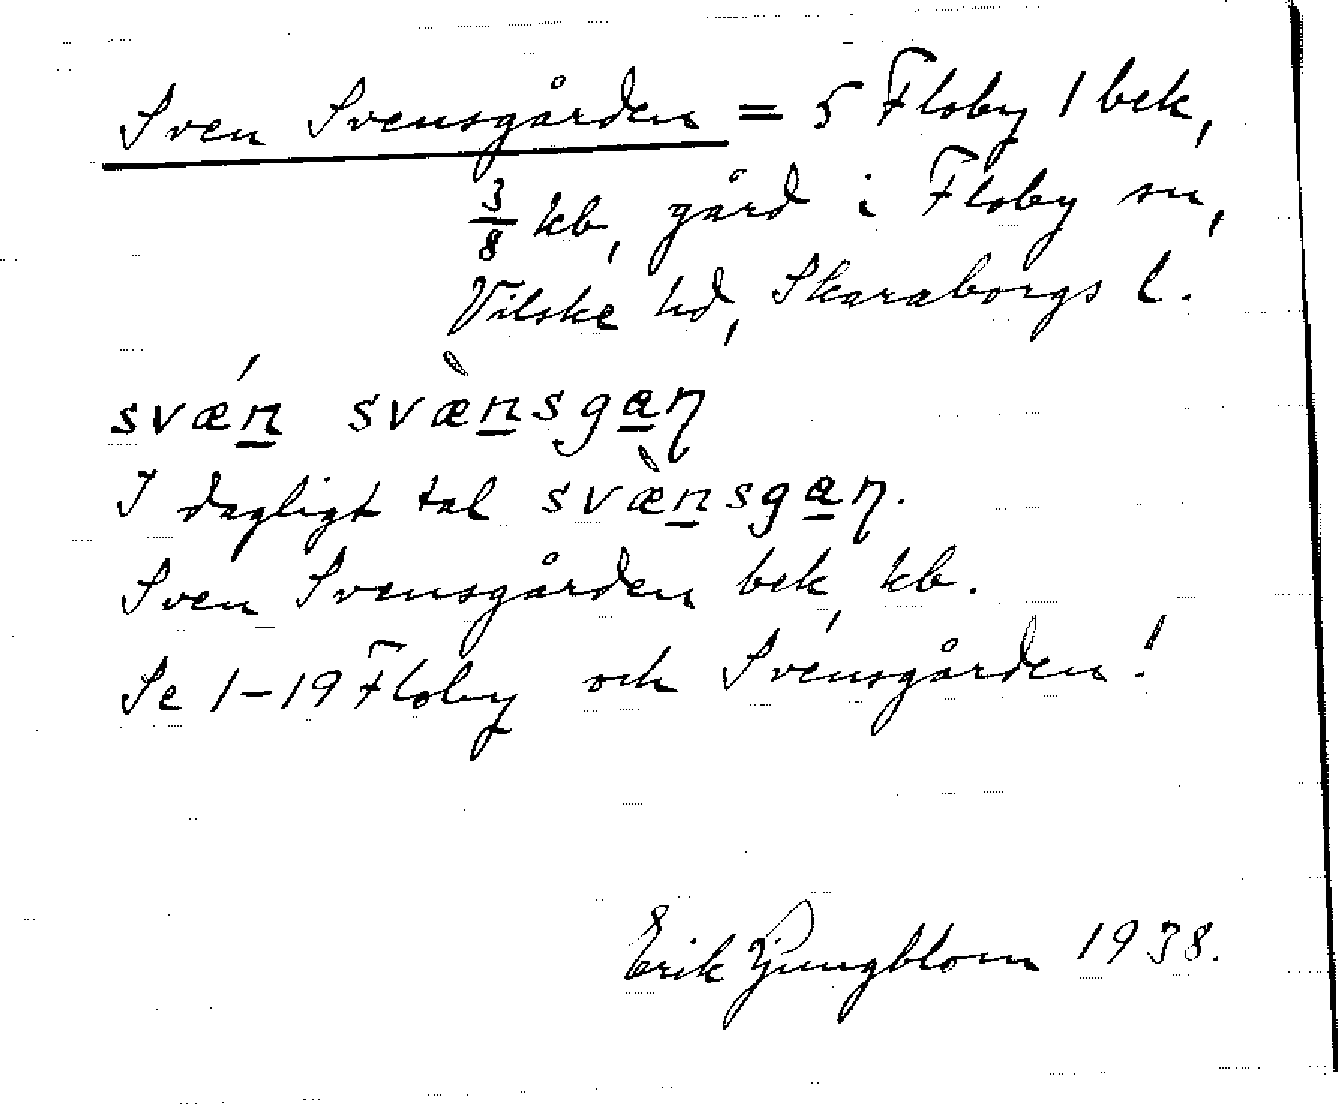 Sven Svensgården = 5 Floby 1 bek,
3/8 kb, gård i Floby sn,
Vilske hd, Skaraborgs l.
svǽn svæ̀nsgaŋ
I dagligt tal svæ̀nsgaŋ.
Sven Svensgården bek, kb.
Se 1-19 Floby och Svensgården!
Erik Ljungblom 1938.